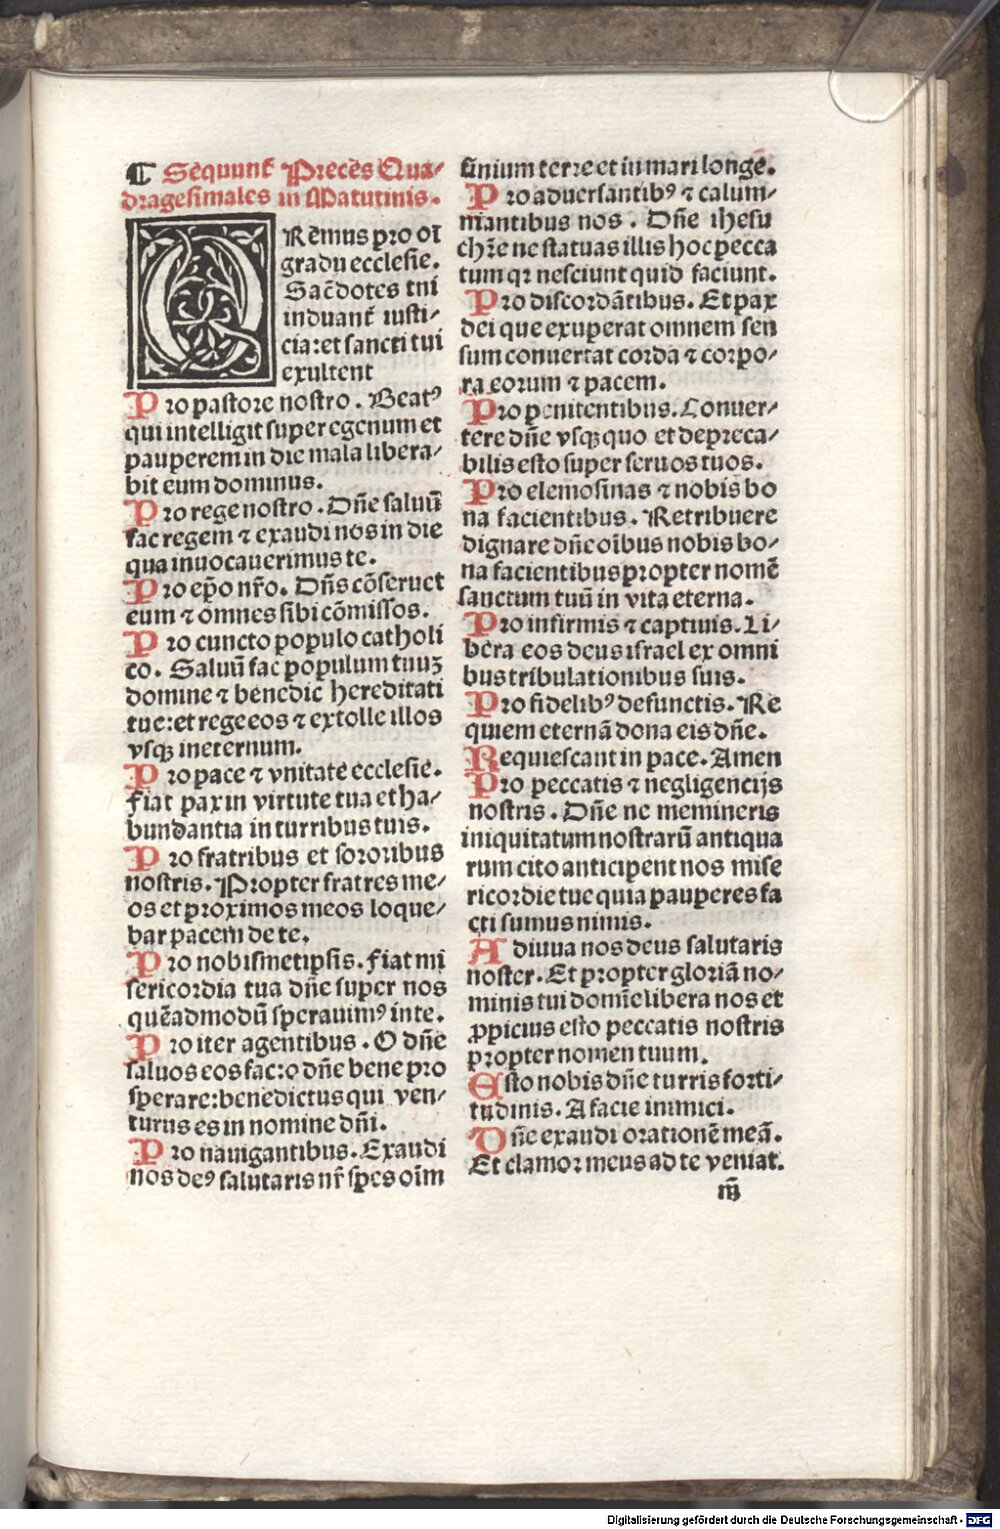 ¶ Sequunt᷑ Preces Qua⸗
dragesimales in Matutinis.
ORemus pro oī
gradu ecclesie.
Sacēdotes tui
induant᷑ iusti⸗
cia:et sancti tui
exultent
Pro pastore nostro. Beatꝰ
qui intelligit super egenum et
pauperem in die mala libera⸗
bit eum dominus.
Pro rege nostro. Dn̄e saluū
fac regem ⁊ exaudi nos in die
qua inuocauerimus te.
Pro ep̄o nr̄o. Dn̄s cōseruet
eum ⁊ omnes sibi cōmissos.
Pro cuncto populo catholi
co. Saluū fac populum tuuꝫ
domine ⁊ benedic hereditati
tue:et rege eos ⁊ extolle illos
vsqꝫ in eternum.
Pro pace ⁊ vnitate ecclesie.
Fiat pax in virtute tua et ha⸗
bundantia in turribus tuis.
Pro fratribus et sororibus
nostris. Propter fratres me⸗
os et proximos meos loque⸗
bar pacem de te.
Pro nobismetipsis. Fiat mi
sericordia tua dn̄e super nos
quēadmodū sperauimꝰ in te.
Pro iter agentibus. O dn̄e
saluos eos fac:o dn̄e bene pro
sperare:benedictus qui ven⸗
turus es in nomine dn̄i.
Pro nauigantibus. Exaudi
nos deꝰ salutaris nr̄ spes oīm
finium terre et in mari longe.
Pro aduersantibꝰ ⁊ calum⸗
niantibus nos. Dn̄e ihesu
chr̄e ne statuas illis hoc pecca
tum qꝛ nesciunt quid faciunt.
Pro discordātibus. Et pax
dei que exuperat omnem sen
sum conuertat corda ⁊ corpo⸗
ra eorum ⁊ pacem.
Pro penitentibus. Conuer⸗
tere dn̄e vsqꝫ quo et depreca⸗
bilis esto super seruos tuos.
Pro elemosinas ⁊ nobis bo
na facientibus. Retribuere
dignare dn̄e oībus nobis bo⸗
na facientibus propter nomē
sanctum tuū in vita eterna.
Pro infirmis ⁊ captiuis. Li⸗
bera eos deus israel ex omni
bus tribulationibus suis.
Pro fidelibꝰ defunctis. Re
quiem eternā dona eis dn̄e.
Requiescant in pace. Amen
Pro peccatis ⁊ negligencijs
nostris. Dn̄e ne memineris
iniquitatum nostrarū antiqua
rum cito anticipent nos mise
ricordie tue quia pauperes fa
cti sumus nimis.
Adiuua nos deus salutaris
noster. Et propter gloriā no⸗
minis tui domīe libera nos et
ꝓpicius esto peccatis nostris
propter nomen tuum.
Esto nobis dn̄e turris forti⸗
tudinis. A facie inimici.
Dn̄e exaudi orationē meā.
Et clamor meus ad te veniat.
m̄
Digitalisierung gefördert durch die Deutsche Forschungsgemeinschaft - DFG